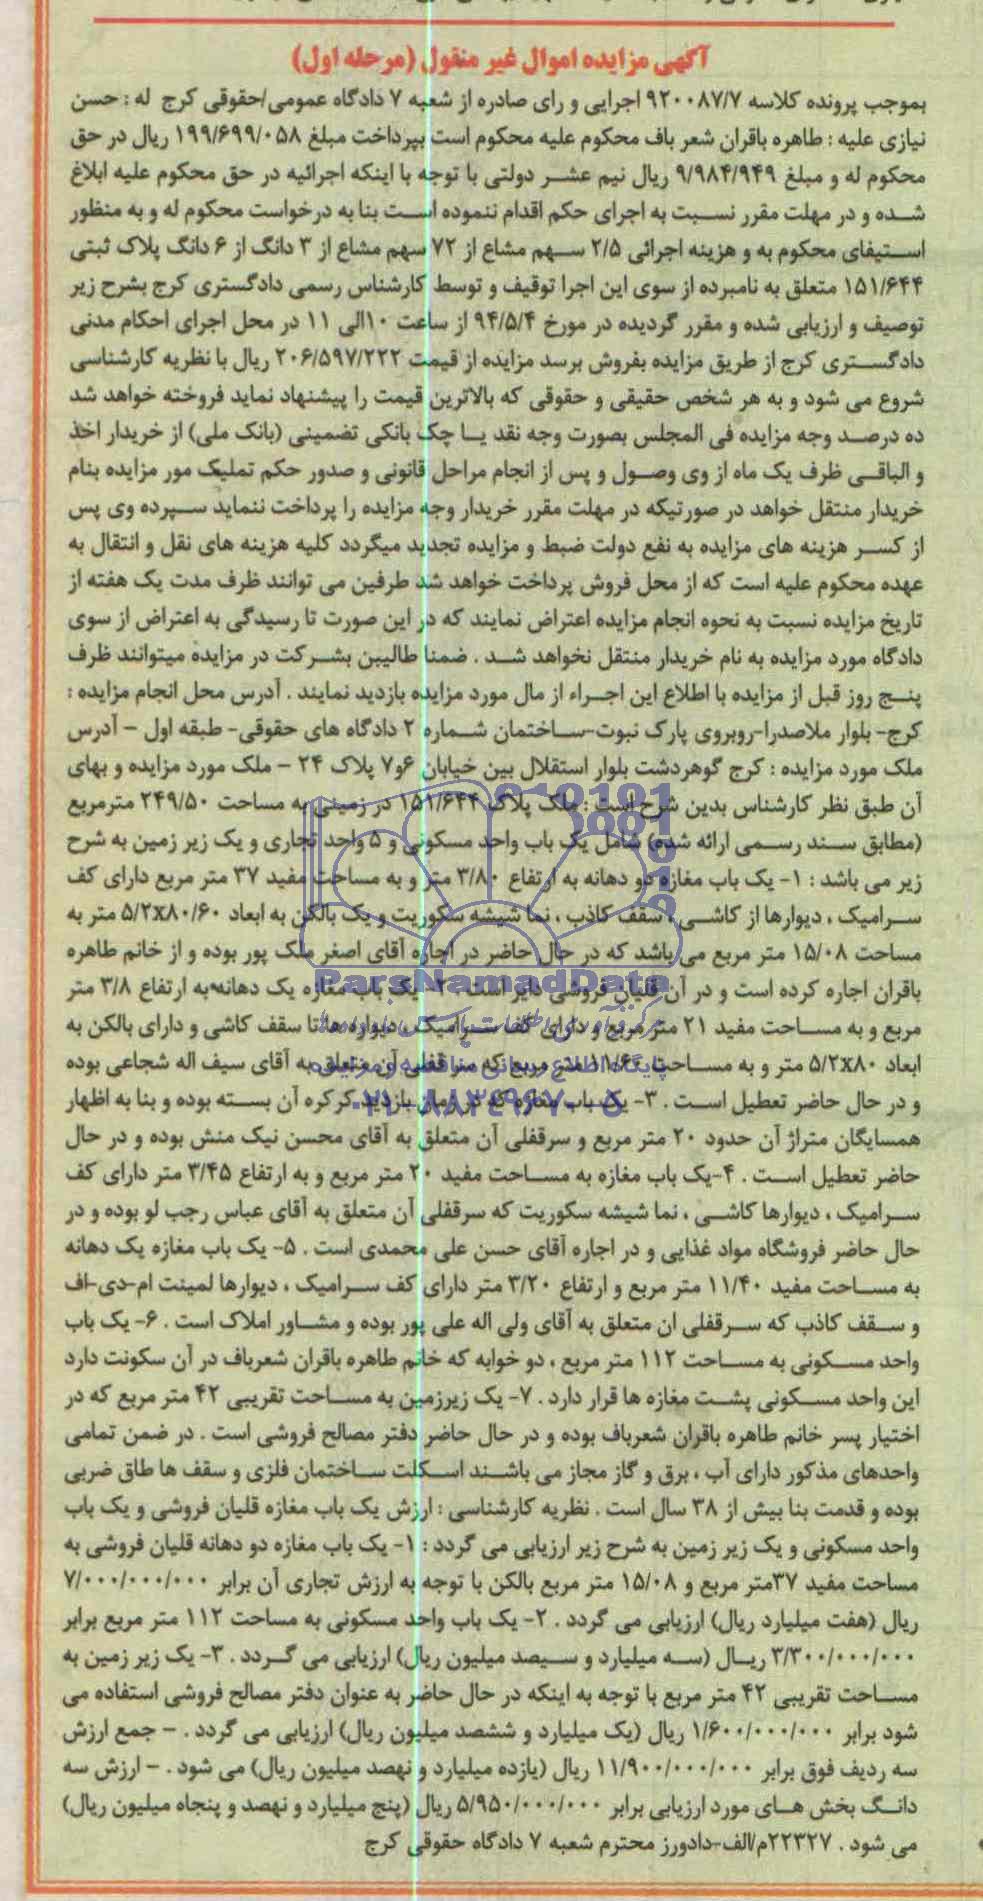 آگهی مزایده اموال غیر منقول (مرحله اول)
بموجب پرونده کلاسه ۹۲۰۰۸۷/۷ اجرایی و رای صادره از شعبه ۷ دادگاه عمومی/حقوقی کرج له : حسن
نیازی علیه : طاهره باقران شعر باف محکوم علیه محکوم است بپرداخت مبلغ ۱۹۹/۶۹۹/۰۵۸ ریال در حق
محکوم له و مبلغ ۹/۹۸۴/۹۴۹ ریال نیم عشر دولتی با توجه با اینکه اجرائیه در حق محکوم علیه ابلاغ
شده و در مهلت مقرر نسبت به اجرای حکم اقدام ننموده است بنا به درخواست محکوم له و به منظور
استیفای محکوم به و هزینه اجرائی ۲/۵ سهم مشاع از ۷۲ سهم مشاع از ۳ دانگ از ۶ دانگ پلاک ثبتی
۱۵۱/۶۴۴ متعلق به نامبرده از سوی این اجرا توقیف و توسط کارشناس رسمی دادگستری کرج بشرح زیر
توصیف و ارزیابی شده و مقرر گردیده در مورخ ۹۴/۵/۴ از ساعت ۱۰الی ۱۱ در محل اجرای احکام مدنی
دادگستری کرج از طریق مزایده بفروش برسد مزایده از قیمت ۲۰۶/۵۹۷/۲۲۲ ریال با نظریه کارشناسی
شروع می شود و به هر شخص حقیقی و حقوقی که بالاترین قیمت را پیشنهاد نماید فروخته خواهد شد
ده درصد وجه مزایده فی المجلس بصورت وجه نقد یا چک بانکی تضمینی (بانک ملی) از خریدار اخذ
و الباقی ظرف یک ماه از وی وصول و پس از انجام مراحل قانونی و صدور حکم تملیک مور مزایده بنام
خریدار منتقل خواهد در صورتیکه در مهلت مقرر خریدار وجه مزایده را پرداخت ننماید سپرده وی پس
از کسر هزینه های مزایده به نفع دولت ضبط و مزایده تجدید میگردد کلیه هزینه های نقل و انتقال به
عهده محکوم علیه است که از محل فروش پرداخت خواهد شد طرفین می توانند ظرف مدت یک هفته از
تاریخ مزایده نسبت به نحوه انجام مزایده اعتراض نمایند که در این صورت تا رسیدگی به اعتراض از سوی
دادگاه مورد مزایده به نام خریدار منتقل نخواهد شد . ضمنا طالیبن بشرکت در مزایده میتوانند ظرف
پنج روز قبل از مزایده با اطلاع این اجراء از مال مورد مزایده بازدید نمایند . آدرس محل انجام مزایده :
کرج- بلوار ملاصدرا-روبروی پارک نبوت-ساختمان شماره ۲ دادگاه های حقوقی- طبقه اول - آدرس
ملک مورد مزایده : کرج گوهردشت بلوار استقلال بین خیابان ۶و۷ پلاک ۲۴ - ملک مورد مزایده و بهای
آن طبق نظر کارشناس بدین شرح است : ملک پلاک ۱۵۱/۶۴۴ در زمینی به مساحت ۲۴۹/۵۰ مترمربع
(مطابق سند رسمی ارائه شده) شامل یک باب واحد مسکونی و ۵ واحد تجاری و یک زیر زمین به شرح
زیر می باشد : ۱- یک باب مغازه دو دهانه به ارتفاع ۳/۸۰ متر و به مساحت مفید ۳۷ متر مربع دارای کف
سرامیک ، دیوارها از کاشی ، سقف کاذب ، نما شیشه سکوریت و یک بالکن به ابعاد ۵/۲x۸۰/۶۰ متر به
مساحت ۱۵/۰۸ متر مربع می باشد که در حال حاضر در اجاره آقای اصغر ملک پور بوده و از خانم طاهره
باقران اجاره کرده است و در آن قلیان فروشی دایر است . ۲- یک باب مغازه یک دهانه به ارتفاع ۳/۸ متر
مربع و به مساحت مفید ۲۱ متر مربع و دارای کف سرامیک ، دیواره ها تا سقف کاشی و دارای بالکن به
ابعاد ۵/۲x۸۰ متر و به مساحت ۱۱/۶۰ متر مربع که سرقفلی آن متعلق به آقای سیف اله شجاعی بوده
و در حال حاضر تعطیل است . ۳- یک باب مغازه که در زمان بازدید کرکره آن بسته بوده و بنا به اظهار
همسایگان متراژ آن حدود ۲۰ متر مربع و سرقفلی آن متعلق به آقای محسن نیک منش بوده و در حال
حاضر تعطیل است . ۴-یک باب مغازه به مساحت مفید ۲۰ متر مربع و به ارتفاع ۳/۴۵ متر دارای کف
سرامیک ، دیوارها کاشی ، نما شیشه سکوریت که سرقفلی آن متعلق به آقای عباس رجب لو بوده و در
حال حاضر فروشگاه مواد غذایی و در اجاره آقای حسن علی محمدی است . ۵- یک باب مغازه یک دهانه
به مساحت مفید ۱۱/۴۰ متر مربع و ارتفاع ۳/۲۰ متر دارای کف سرامیک ، دیوارها لمینت ام-دی-اف
و سقف کاذب که سرقفلی ان متعلق به آقای ولی اله علی پور بوده و مشاور املاک است . ۶- یک باب
واحد مسکونی به مساحت ۱۱۲ متر مربع ، دو خوابه که خانم طاهره باقران شعرباف در آن سکونت دارد
این واحد مسکونی پشت مغازه ها قرار دارد . ۷- یک زیرزمین به مساحت تقریبی ۴۲ متر مربع که در
اختیار پسر خانم طاهره باقران شعرباف بوده و در حال حاضر دفتر مصالح فروشی است . در ضمن تمامی
واحدهای مذکور دارای آب ، برق و گاز مجاز می باشند اسکلت ساختمان فلزی و سقف ها طاق ضربی
بوده و قدمت بنا بیش از ۳۸ سال است . نظریه کارشناسی : ارزش یک باب مغازه قلیان فروشی و یک باب
واحد مسکونی و یک زیر زمین به شرح زیر ارزیابی می گردد : ۱- یک باب مغازه دو دهانه قلیان فروشی به
مساحت مفید ۳۷متر مربع و ۱۵/۰۸ متر مربع بالکن با توجه به ارزش تجاری آن برابر ۷/۰۰۰/۰۰۰/۰۰۰
ریال (هفت میلیارد ریال) ارزیابی می گردد . ۲- یک باب واحد مسکونی به مساحت ۱۱۲ متر مربع برابر
۳/۳۰۰/۰۰۰/۰۰۰ ریال (سه میلیارد و سیصد میلیون ریال) ارزیابی می گردد . ۳- یک زیر زمین به
مساحت تقریبی ۴۲ متر مربع با توجه به اینکه در حال حاضر به عنوان دفتر مصالح فروشی استفاده می
شود برابر ۱/۶۰۰/۰۰۰/۰۰۰ ریال (یک میلیارد و ششصد میلیون ریال) ارزیابی می گردد . - جمع ارزش
سه ردیف فوق برابر ۱۱/۹۰۰/۰۰۰/۰۰۰ ریال (یازده میلیارد و نهصد میلیون ریال) می شود . - ارزش سه
دانگ بخش های مورد ارزیابی برابر ۵/۹۵۰/۰۰۰/۰۰۰ ریال (پنج میلیارد و نهصد و پنجاه میلیون ریال)
می شود . ۲۲۳۲۷م/الف-دادورز محترم شعبه ۷ دادگاه حقوقی کرج
ParsNamadData
پایگاه اطلاع رسانی مناقصه و مزایده
۰۲۱-۸۸۳۴۹۶۷۰-۵